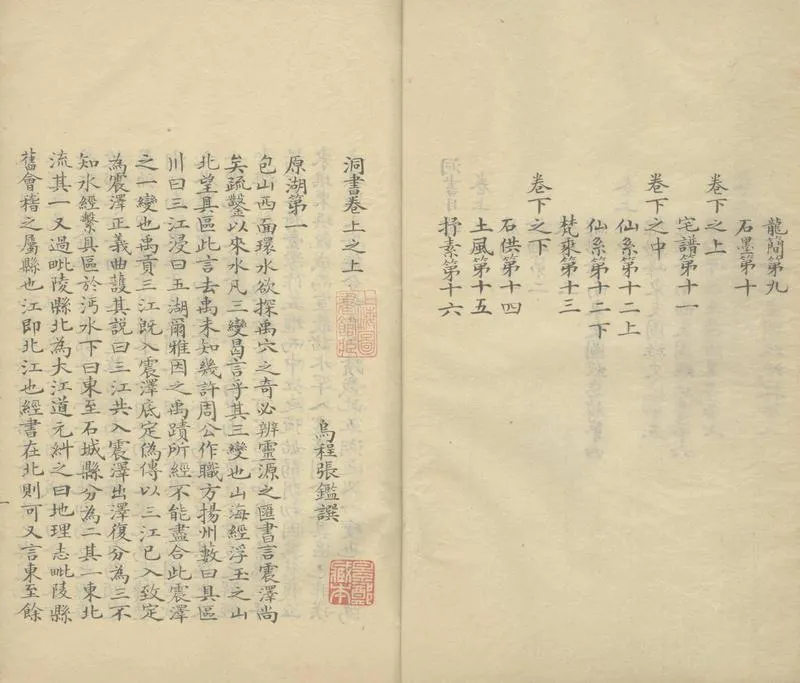 龍簡第九
石墨第十
卷下之上
宅譜第十一
卷下之中
仙系第十二上
仙系第十二下
梵乘第十三
卷下之下
石供第十四
土風第十五
抒素第十六
洞書卷上之上
烏程張鑑譔
原湖第一
包山西面環水欲探禹穴之奇必辨靈源之匯書言震澤尚
矣疏鑿以來水凡三變曷言乎其三變也山海經浮玉之山
北望具區此言去禹未知幾許周公作職方揚州藪曰具區
川曰三江浸曰五湖爾雅因之禹蹟所經不能盡合此震澤
之一變也禹貢三江既入震澤底定偽傳以三江已入致定
為震澤正義曲護其說曰三江共入震澤出澤復分為三不
知水經繫具區於沔水下曰東至石城縣分為二其一東北
流其一又過毗陵縣北為大江道元糾之曰地理志毗陵縣
舊會稽之屬縣也江即北江也經書在北則可又言東至餘
一